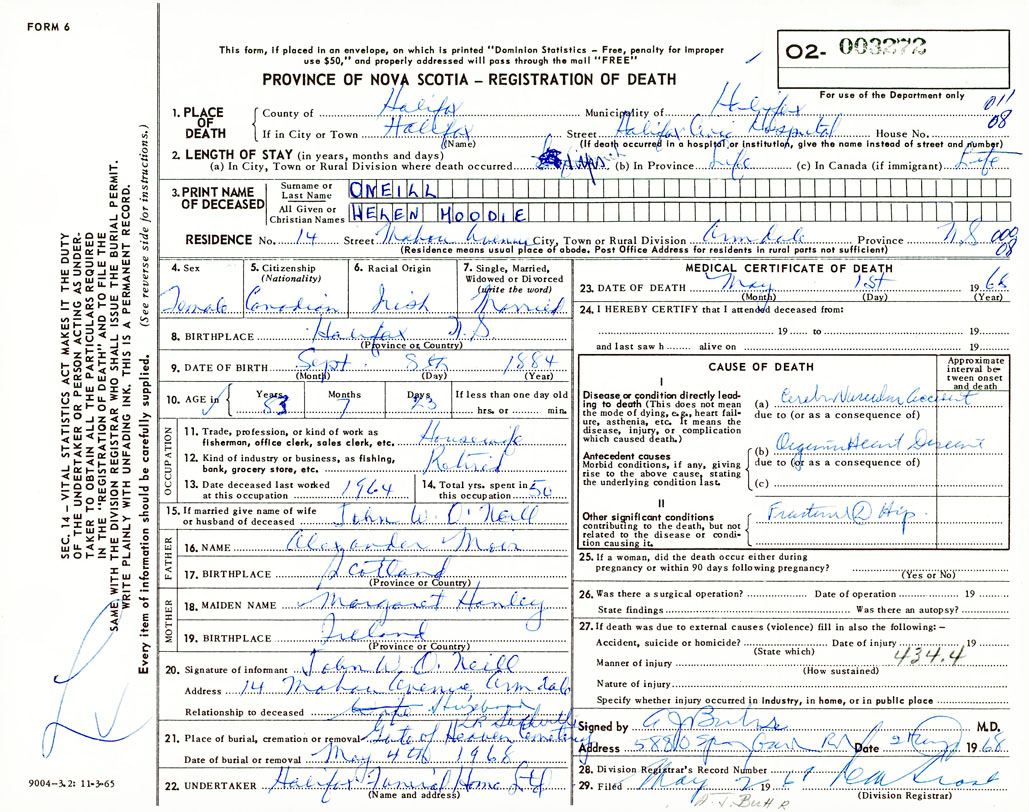 FORM 6
This form, if placed in an envelope, on which is printed "Dominion Statistics – Free, penalty for improper
use $50," and properly addressed will pass through the mail "FREE"
PROVINCE OF NOVA SCOTIA – REGISTRATION OF DEATH
O2- 003272
For use of the Department only
011
08
1. PLACE OF DEATH
County of Halifax Municipality of Halifax
If in City or Town Halifax Street Halifax Civic Hospital House No.
(Name) (If death occurred in a hospital or institution, give the name instead of street and number)
2. LENGTH OF STAY (in years, months and days)
(a) In City, Town or Rural Division where death occurred (b) In Province Life (c) In Canada (if immigrant) Life
3. PRINT NAME OF DECEASED
Surname or Last Name ONEILL
All Given or Christian Names HELEN MOODIE
RESIDENCE No. 14 Street Mahon Avenue City, Town or Rural Division Armdale Province N.S
(Residence means usual place of abode. Post Office Address for residents in rural parts not sufficient)
009
08
4. Sex
Female
5. Citizenship (Nationality)
Canadian
6. Racial Origin
Irish
7. Single, Married, Widowed or Divorced (write the word)
Married
8. BIRTHPLACE Halifax N.S
(Province or Country)
9. DATE OF BIRTH Sept. 8th 1884
(Month) (Day) (Year)
10. AGE in Years 83 Months 7 Days 23 If less than one day old
hrs. or min.
OCCUPATION
11. Trade, profession, or kind of work as
fisherman, office clerk, sales clerk, etc. Housewife
12. Kind of industry or business, as fishing,
bank, grocery store, etc. Retired
13. Date deceased last worked
at this occupation 1964
14. Total yrs. spent in
this occupation 50
15. If married give name of wife
or husband of deceased John W. O'Neill
FATHER
16. NAME Alexander Moir
17. BIRTHPLACE Scotland
(Province or Country)
MOTHER
18. MAIDEN NAME Margaret Hanley
19. BIRTHPLACE Ireland
(Province or Country)
20. Signature of informant John W. O'Neill
Address 14 Mahon Avenue Armdale
Relationship to deceased Husband
21. Place of burial, cremation or removal Gate of Heaven Cemetery
Date of burial or removal May 4th 1968
22. UNDERTAKER Halifax Funeral Home Ltd
(Name and address)
MEDICAL CERTIFICATE OF DEATH
23. DATE OF DEATH May 1st 1968
(Month) (Day) (Year)
24. I HEREBY CERTIFY that I attended deceased from:
19 to 19
and last saw h alive on 19
CAUSE OF DEATH
Approximate interval between onset and death
I
Disease or condition directly leading to death (This does not mean the mode of dying, e.g., heart failure, asthenia, etc. It means the disease, injury, or complication which caused death.)
(a) Cerebro Vascular Accident
due to (or as a consequence of)
Antecedent causes
Morbid conditions, if any, giving rise to the above cause, stating the underlying condition last.
(b) Heart Disease
due to (or as a consequence of)
(c)
II
Other significant conditions
contributing to the death, but not related to the disease or condition causing it.
Fractured Hip.
25. If a woman, did the death occur either during
pregnancy or within 90 days following pregnancy?
(Yes or No)
26. Was there a surgical operation? Date of operation 19
State findings Was there an autopsy?
27. If death was due to external causes (violence) fill in also the following: –
Accident, suicide or homicide? Date of injury 19
(State which)
434.4
Manner of injury
(How sustained)
Nature of injury
Specify whether injury occurred in industry, in home, or in public place
Signed by M.D.
Address 5880 Spring Garden Rd Date 2 May 1968
28. Division Registrar's Record Number
29. Filed May 2 1968
(Division Registrar)
SEC. 14 – VITAL STATISTICS ACT MAKES IT THE DUTY
OF THE UNDERTAKER OR PERSON ACTING AS UNDERTAKER
TO OBTAIN ALL THE PARTICULARS REQUIRED
IN THE "REGISTRATION OF DEATH" AND TO FILE THE
SAME WITH THE DIVISION REGISTRAR WHO SHALL ISSUE THE BURIAL PERMIT.
WRITE PLAINLY WITH UNFADING INK. THIS IS A PERMANENT RECORD.
Every item of information should be carefully supplied. (See reverse side for instructions.)
9004-3.2: 11-3-65